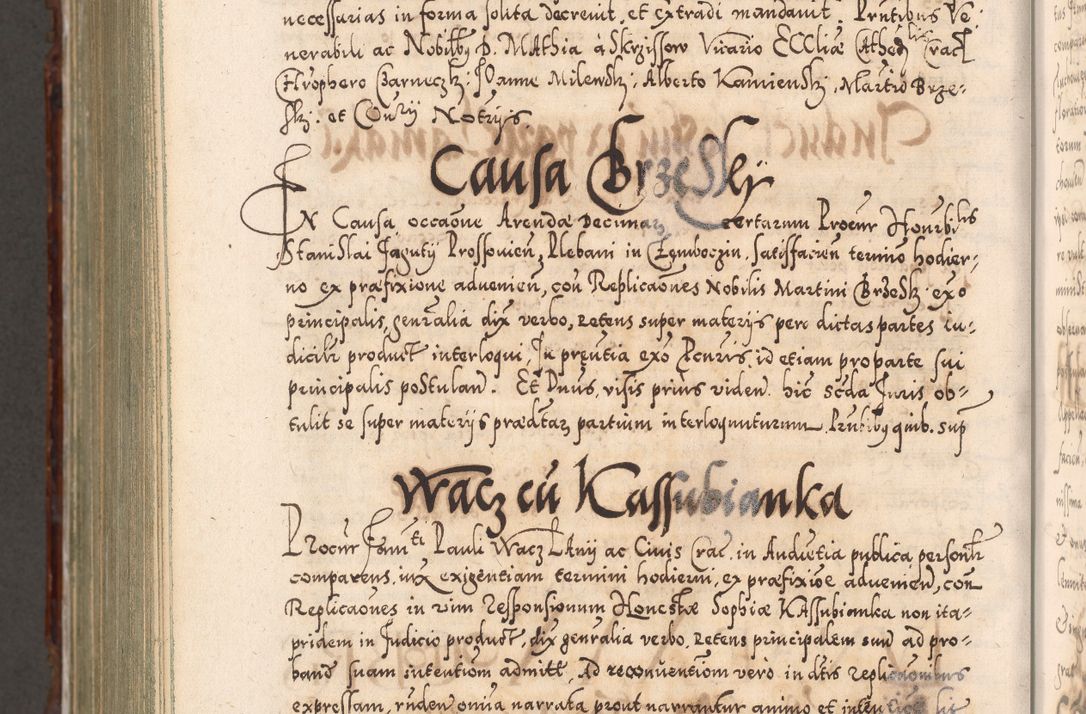 necessarias in forma solita decrevit et extradi mandavit. Prntibus Ve-
nerabili ac Nobilibq D. Mathia à Skrzissow Vicario Eccliæ Cathedlis Crac
Chrophero Czarneczk: Joanne Milewsk: Alberto Kamiensk: Martio Brze-
sk: et Coury Notrijs.
Causa Brzesky
In Causa occaõne Arendæ Decimaz certarum Procur Honrbilis
Stanislai Jagutij Prossovien, Plebani in Czemboczin, satisfacien termio hodier-
no ex præfixione advenien, coñ Replicaones Nobilis Martini Brzesk: exo
principalis, genralia dix verbo, retens super materijs per dictas partes iu-
dicilr product interloqui, In prentia exo Penris, id etiam pro parte sui
principalis postulan. Et Dnus, visis prius viden. hic scda Juris ob-
tulit se super materijs prædtaz partium interloquuturum. Prntibq quib. sup
Wacz cũ Kassubianka
Procur famti Pauli Wacz Lanij ac Civis Crac. in Audietia publica personlr
comparens, iux exigentiam termini hodierni, ex præfixioe advenien, coñ
Replicaones in vim responsionum Honestæ Sophiæ Kassubianka non ita-
pridem in Judicio product, dix genralia verbo, retens principalem suu ad pro-
band suam intentiom admitt, Ad reconventiom vero in dtis replicaonibus
expressam, rnden omia narrata prout narrantur animo et inten